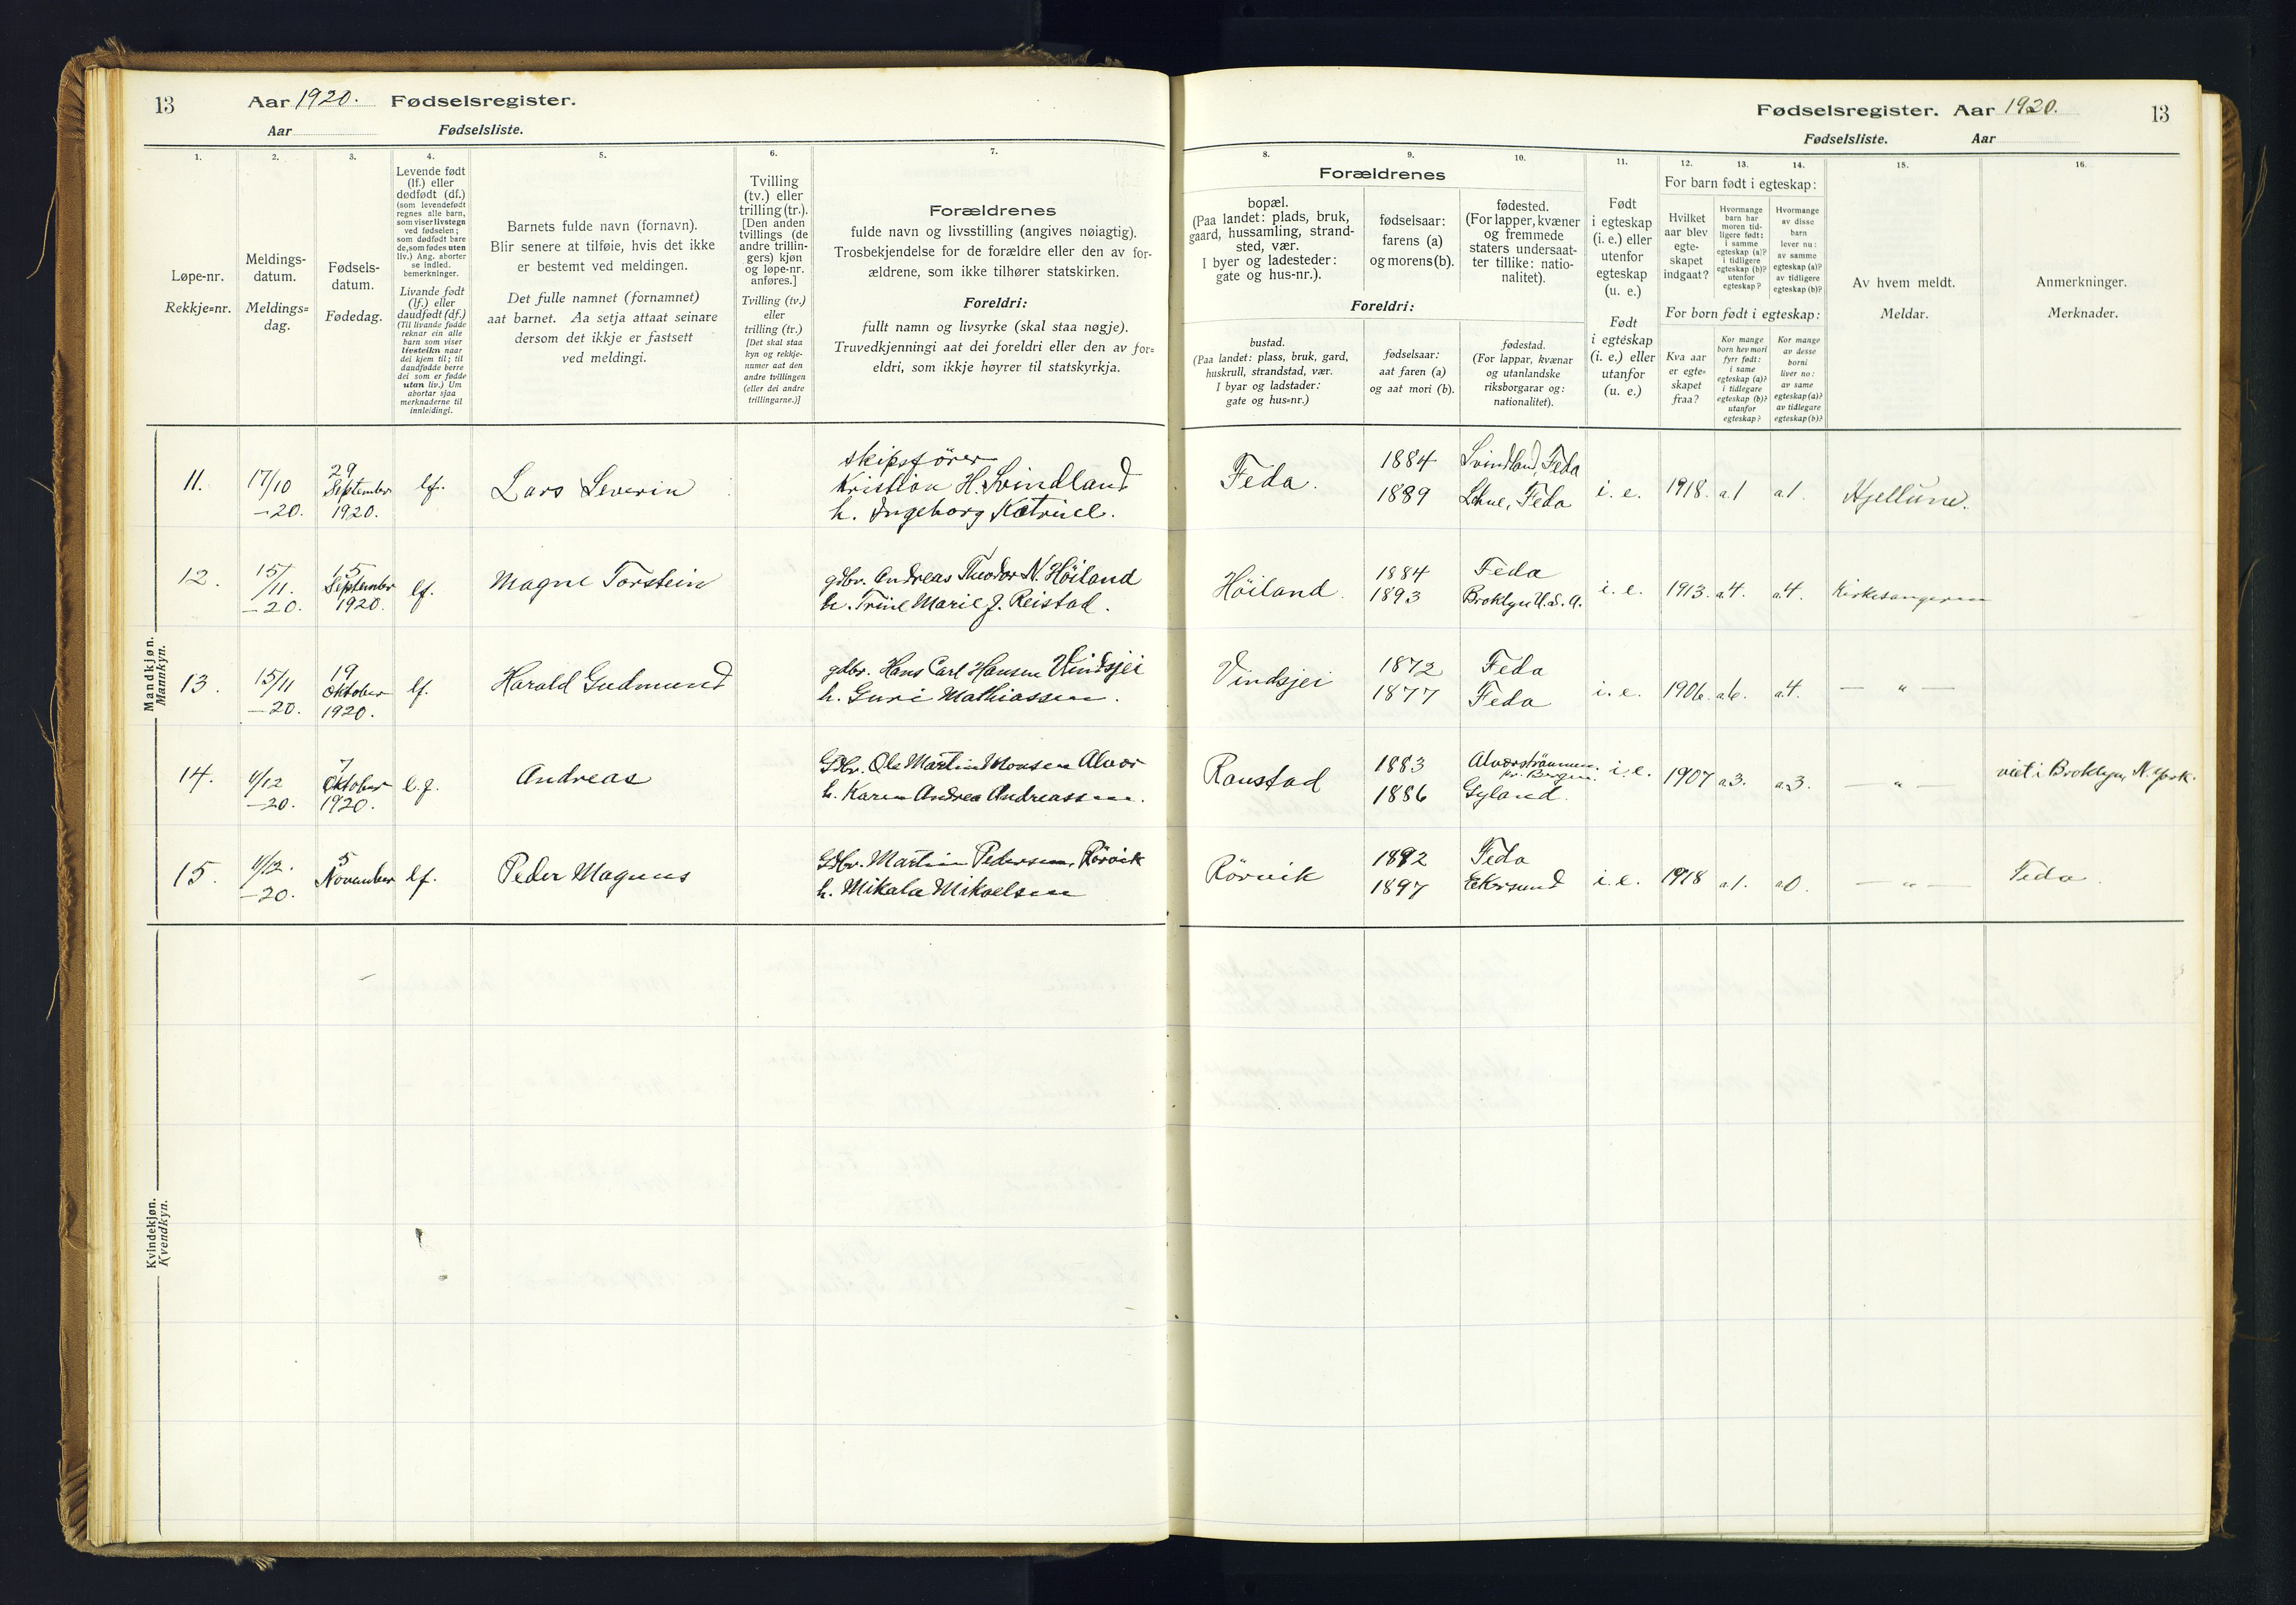 13 Aar 1920. Fødselsregister.
Aar Fødselsliste.
1. 2. 3. 4. 5. 6. 7.
Løpe-nr.
Rekkje=nr.
Meldings-
datum.
Meldings=
dag.
Fødsels-
datum.
Fødedag.
Levende født
(lf.) eller
dødfødt (df.)
(som levendefødt
regnes alle barn,
som viser livstegn
ved fødselen;
som dødfødt bare
de, som fødes uten
liv.) Ang. aborter
se indled.
bemerkninger.
Livande født
(lf.) eller
daudfødt (df.)
(Til livande fødde
reknar ein alle
barn som viser
livsteikn naar
dei kjem til; til
daudfødde berre
dei som er fødde
utan liv.) Um
abortar sjaa
merknaderne til
innleidingi.
Barnets fulde navn (fornavn).
Blir senere at tilføie, hvis det ikke
er bestemt ved meldingen.
Det fulle namnet (fornamnet)
aat barnet. Aa setja attaat seinare
dersom det ikkje er fastsett
ved meldingi.
Tvilling
(tv.) eller
trilling (tr.).
[Den anden
tvillings (de
andre trillin-
gers) kjøn
og løpe-nr.
anføres.]
Tvilling (tv.)
eller
trilling (tr.)
[Det skal staa
kyn og rekkje-
numer aat den
andre tvillingen
(eller dei andre
trillingarne.)]
Forældrenes
fulde navn og livsstilling (angives nøiagtig).
Trosbekjendelse for de forældre eller den av for-
ældrene, som ikke tilhører statskirken.
Foreldri:
fullt namn og livsyrke (skal staa nøgje).
Truvedkjenningi aat dei foreldri eller den av for=
eldri, som ikkje høyrer til statskyrkja.
Mandkjøn.
Mannkyn.
11. 17/10 -20. 29 September 1920. lf. Lars Severin
skipsfører
Kristian H. Svindland
h. Ingeborg Katrine.
12. 15/11. -20. 15 September 1920. lf. Magne Torstein
gdbr. Andreas Theodor N. Höiland
h. Trine Marie J. Reistad.
13. 15/11 -20. 19 Oktober 1920. lf. Harald Gudmund
gdbr. Hans Carl Hansen Vindsjei
h. Guri Mathiassen.
14. 4/12 -20. 7 Oktober 1920. l.f. Andreas
Gdbr. Ole Martin Monsen Alver
h. Karen Andrea Andreassen.
15. 4/12. -20. 5 November lf. Peder Magnus
Gdbr. Martin Pedersen, Rörvik
h. Mikala Mikaelsen
Kvindekjøn.
Kvendkyn.
Fødselsregister. Aar 1920. 13
Fødselsliste. Aar
8. 9. 10. 11. 12. 13. 14. 15. 16.
Forældrenes
bopæl.
(Paa landet: plads, bruk,
gaard, hussamling, strand-
sted, vær.
I byer og ladesteder:
gate og hus-nr.).
fødselsaar:
farens (a)
og morens (b).
fødested.
(For lapper, kvæner
og fremmede
staters undersaat-
ter tillike: natio-
nalitet).
Foreldri:
bustad.
(Paa landet: plass, bruk, gard,
huskrull, strandstad, vær.
I byar og ladstader:
gate og hus=nr.)
fødselsaar:
aat faren (a)
og aat mori (b).
fødestad.
(For lappar, kvænar
og utanlandske
riksborgarar og:
nationalitet).
Født
i egteskap
(i. e.) eller
utenfor
egteskap
(u. e.)
Født
i egteskap
(i. e.) eller
utanfor
(u. e.)
For barn født i egteskap:
Hvilket
aar blev
egte-
skapet
indgaat?
Hvormange
barn har
moren tid-
ligere født:
i samme
egteskap (a)?
i tidligere
egteskap (b)?
utenfor
egteskap?
Hvormange
av disse
barn
lever nu:
av samme
egteskap (a)?
av tidligere
egteskap (b)?
For born født i egteskap:
Kva aar
er egte=
skapet
fraa?
Kor mange
born hev mori
fyrr født:
i same
egteskap (a)?
i tidlegare
egteskap (b)?
utanfor
egteskap?
Kor mange
av desse
borni
liver no:
av same
egteskap (a)?
av tidlegare
egteskap (b)?
Av hvem meldt.
Meldar.
Anmerkninger.
Merknader.
Feda. 1884 Svindland, Feda
1889 Lehne, Feda i. e. 1918. a.1 a1. Hjellune.
Höiland. 1884 Feda
1893 Broklyn U.S.A. i. e. 1913. a.4. a.4. Kirkesangeren
Vindsjei 1872 Feda
1877 Feda i. e. 1906. a.6. a.4. — " —
Raustad 1883 Alverströmmen
pr. Bergen.
1886 Gyland. i. e. 1907 a3. a.3. — " — viet i Broklyn, N. York.
Rörvik 1892 Feda
1897 Ekersund i. e. 1918 a1. a0. — " — Feda.